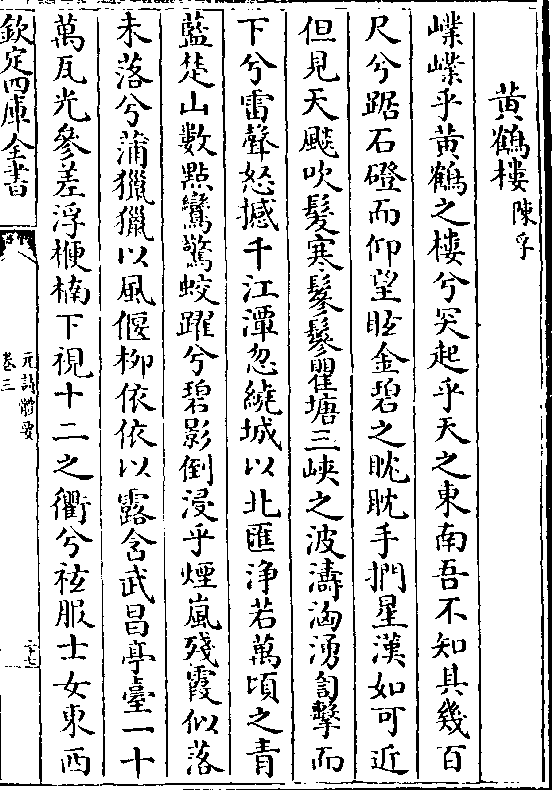 黄鶴樓 陳孚
嶪嶪乎黄鶴之樓兮突起乎天之東南吾不知其幾百
尺兮踞石磴而仰望眩金碧之眈眈手捫星漢如可近
但見天飈吹髮寒鬖鬖瞿塘三峽之波濤洶湧訇擊而
下兮雷聲怒撼千江潭忽繞城以北匯浄若萬頃之青
藍楚山數點鸞驚蛟躍兮碧影倒浸乎煙嵐殘霞似落
未落兮蒲獵獵以風偃栁依依以露含武昌亭臺一十
萬瓦光參差浮楩楠下視十二之衢兮袨服士女東西
欽定四庫全書
元詩體要
卷三
二十七